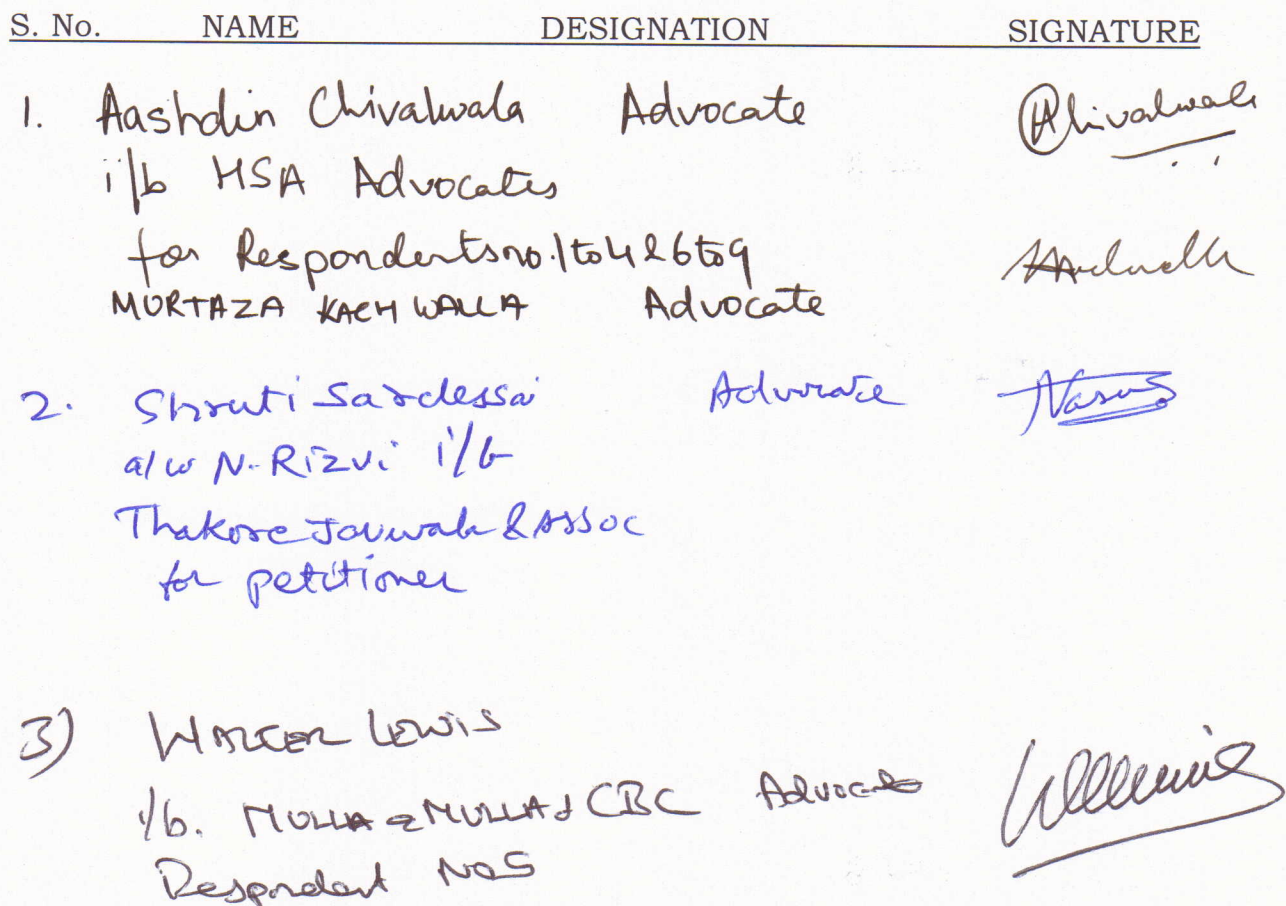 S. No. NAME DESIGNATION SIGNATURE
1. Aashdin Chivalwala Advocate
i/b HSA Advocates
for Respondents no. 1 to 4 & 6 to 9
MURTAZA KACHWALLA Advocate
2. Shruti Sardessai Advocate
a/w N. Rizvi i/b
Thakore Jariwala & Assoc
for petitioner
3) WALTER LEWIS
i/b. MULLA & MULLA & CBC Advocate
Respondent No 5